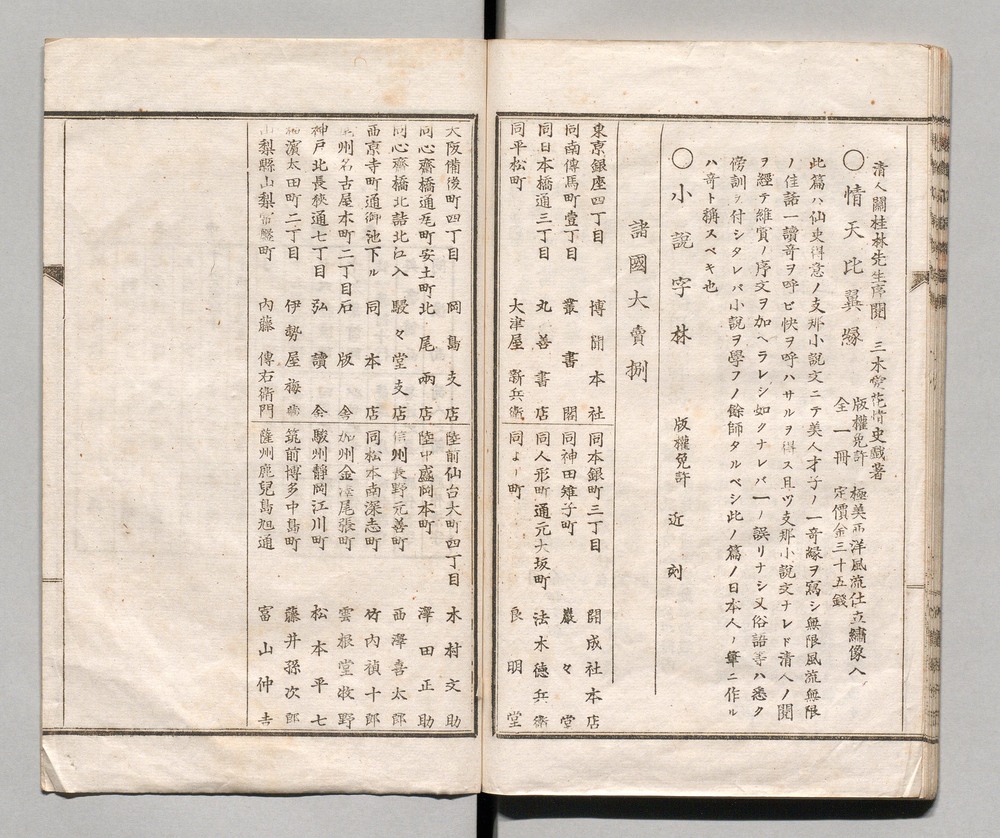 清人關桂林先生序閱　三木愛花情史戲著
○情天比翼緣　版權免許　極美西洋風流仕立繡像入
全一冊　定價金三十五錢
此篇ハ仙史得意ノ支那小說文ニテ美人才子ノ一奇緣ヲ寫シ無限風流無限
ノ佳話一讀奇ヲ呼ビ快ヲ呼ハサルヲ得ス且ツ支那小說文ナレド清人ノ閱
ヲ經テ維質ノ序文ヲ加ヘラレシ如クナレバ一ノ誤リナシ又俗語等ハ悉ク
傍訓ヲ付シタレバ小說ヲ學フノ餘師タルベシ此ノ篇ノ日本人ノ筆ニ作ル
ハ奇ト稱スベキ也
○小說字林　版權免許　近刻
諸國大賣捌
東京銀座四丁目　博聞本社
同南傳馬町壹丁目　叢書閣
同日本橋通三丁目　丸善書店
同平松町　大津屋新兵衞
同本銀町三丁目　開成社本店
同神田雉子町　巖々堂
同人形町通元大坂町　法木德兵衞
同　町　良明堂
大阪備後町四丁目　岡島支店
同心齋橋通安土町北　尾兩店
同心齋橋北詰北江入　駸々堂支店
西京寺町通御池下ル　同本店
州名古屋本町二丁目　石版舍
神戸北長狹通七丁目　弘讀舍
濱太田町二丁目　伊勢屋梅
山梨縣山梨町　內藤傳右衞門
陸前仙台大町四丁目　木村文助
陸中盛岡本町　澤田正助
信州長野元善町　西澤喜太郎
同松本南深志町　竹內禎十郎
加州金澤尾張町　雲根堂牧野
駿州靜岡江川町　松本平七
筑前博多中島町　藤井孫次郎
薩州鹿兒島旭通　富山仲吉